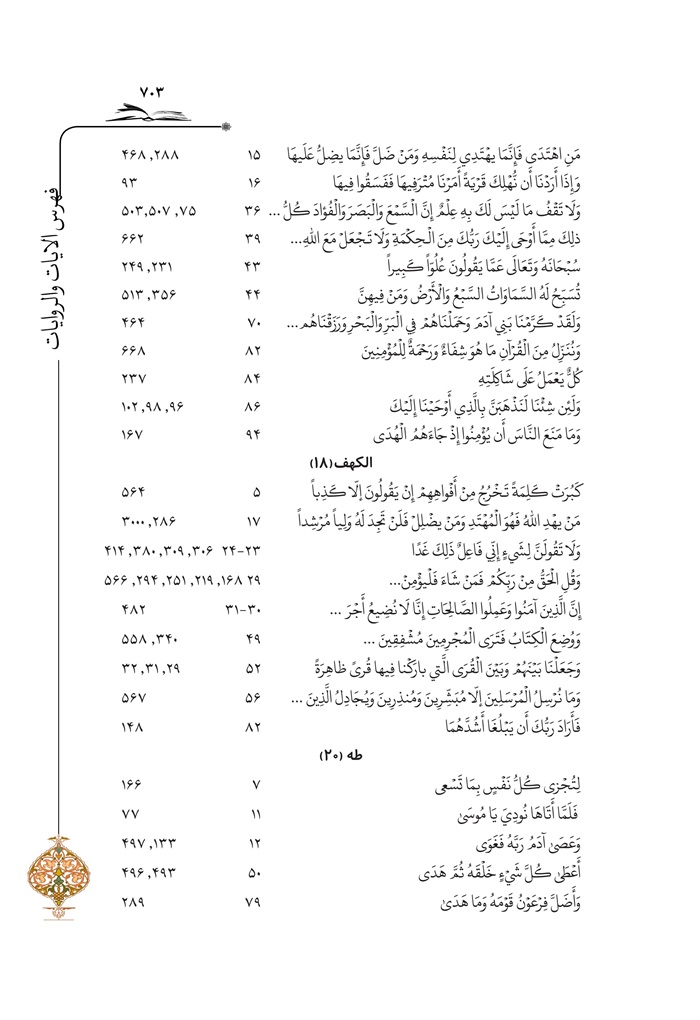 ۷۰۳
فهرس الآیات والروایات
مَنِ اهْتَدَى فَإِنَّمَا يهْتَدِي لِنَفْسِهِ وَمَنْ ضَلَّ فَإِنَّمَا يضِلُّ عَلَيهَا ۱۵ ۲۸۸, ۴۶۸
وَإِذَا أَرَدْنَا أَن نُهْلِكَ قَرْيَةً أَمَرْنَا مُتْرَفِيهَا فَفَسَقُوا فِيهَا ۱۶ ۹۳
وَلَا تَقْفُ مَا لَيْسَ لَكَ بِهِ عِلْمٌ إِنَّ السَّمْعَ وَالْبَصَرَ وَالْفُؤَادَ كُلُّ ... ۳۶ ۷۵, ۵۰۷, ۵۰۳
ذلِكَ مِمَّا أَوْحَى إِلَيْكَ رَبُّكَ مِنَ الْحِكْمَةِ وَلَا تَجْعَلْ مَعَ اللهِ... ۳۹ ۶۶۲
سُبْحَانَهُ وَتَعَالَى عَمَّا يَقُولُونَ عُلُوّاً كَبِيراً ۴۳ ۲۳۱, ۲۴۹
تُسَبِّحُ لَهُ السَّمَاوَاتُ السَّبْعُ وَالْأَرْضُ وَمَنْ فِيهِنَّ ۴۴ ۳۵۶, ۵۱۳
وَلَقَدْ كَرَّمْنَا بَنِي آدَمَ وَحَمَلْنَاهُمْ فِي الْبَرِّ وَالْبَحْرِ وَرَزَقْنَاهُم... ۷۰ ۴۶۴
وَنُنَزِّلُ مِنَ الْقُرْآنِ مَا هُوَ شِفَاءٌ وَرَحْمَةٌ لِلْمُؤْمِنِينَ ۸۲ ۶۶۸
كُلٌّ يَعْمَلُ عَلَى شَاكِلَتِهِ ۸۴ ۲۳۷
وَلَئِن شِئْنَا لَنَذْهَبَنَّ بِالَّذِي أَوْحَيْنَا إِلَيْكَ ۸۶ ۹۶, ۹۸, ۱۰۲
وَمَا مَنَعَ النَّاسَ أَن يُؤْمِنُوا إِذْ جَاءَهُمُ الْهُدَى ۹۴ ۱۶۷
الكهف (۱۸)
كَبُرَتْ كَلِمَةً تَخْرُجُ مِنْ أَفْوَاهِهِمْ إِنْ يَقُولُونَ إلّا كَذِباً ۵ ۵۶۴
مَنْ يهْدِ اللهُ فَهُوَ الْمُهْتَدِ وَمَنْ يضْلِلْ فَلَنْ تَجِدَ لَهُ وَلِياً مُرْشِداً ۱۷ ۲۸۶, ۳۰۰۰
وَلَا تَقُولَنَّ لِشَيْءٍ إِنِّي فَاعِلٌ ذَلِكَ غَدًا ۲۳-۲۴ ۳۰۶, ۳۰۹, ۳۸۰, ۴۱۴
وَقُلِ الْحَقُّ مِنْ رَبِّكُمْ فَمَنْ شَاءَ فَلْيُؤْمِنْ... ۲۹ ۱۶۸, ۲۱۹, ۲۵۱, ۲۹۴, ۵۶۶
إِنَّ الَّذِينَ آمَنُوا وَعَمِلُوا الصَّالِحَاتِ إِنَّا لَا نُضِيعُ أَجْرَ ... ۳۰-۳۱ ۴۸۲
وَوُضِعَ الْكِتَابُ فَتَرَى الْمُجْرِمِينَ مُشْفِقِينَ ... ۴۹ ۳۴۰, ۵۵۸
وَجَعَلْنَا بَيْنَهُمْ وَبَيْنَ الْقُرَى الَّتِي بارَكْنا فِيها قُرىً ظاهِرَةً ۵۲ ۲۹, ۳۱, ۳۲
وَمَا نُرْسِلُ الْمُرْسَلِينَ إلّا مُبَشِّرِينَ وَمُنذِرِينَ وَيُجَادِلُ الَّذِينَ ... ۵۶ ۵۶۷
فَأَرَادَ رَبُّكَ أَن يَبْلُغَا أَشُدَّهُمَا ۸۲ ۱۴۸
طه (۲۰)
لِتُجْزى كُلُّ نَفْسٍ بِمَا تَسْعى ۷ ۱۶۶
فَلَمَّا أَتَاهَا نُودِيَ يَا مُوسَىٰ ۱۱ ۷۷
وَعَصَىٰ آدَمُ رَبَّهُ فَغَوَى ۱۲ ۱۳۳, ۴۹۷
أَعْطَىٰ كُلَّ شَيْءٍ خَلْقَهُ ثُمَّ هَدَى ۵۰ ۴۹۳, ۴۹۶
وَأَضَلَّ فِرْعَوْنُ قَوْمَهُ وَمَا هَدَىٰ ۷۹ ۲۸۹